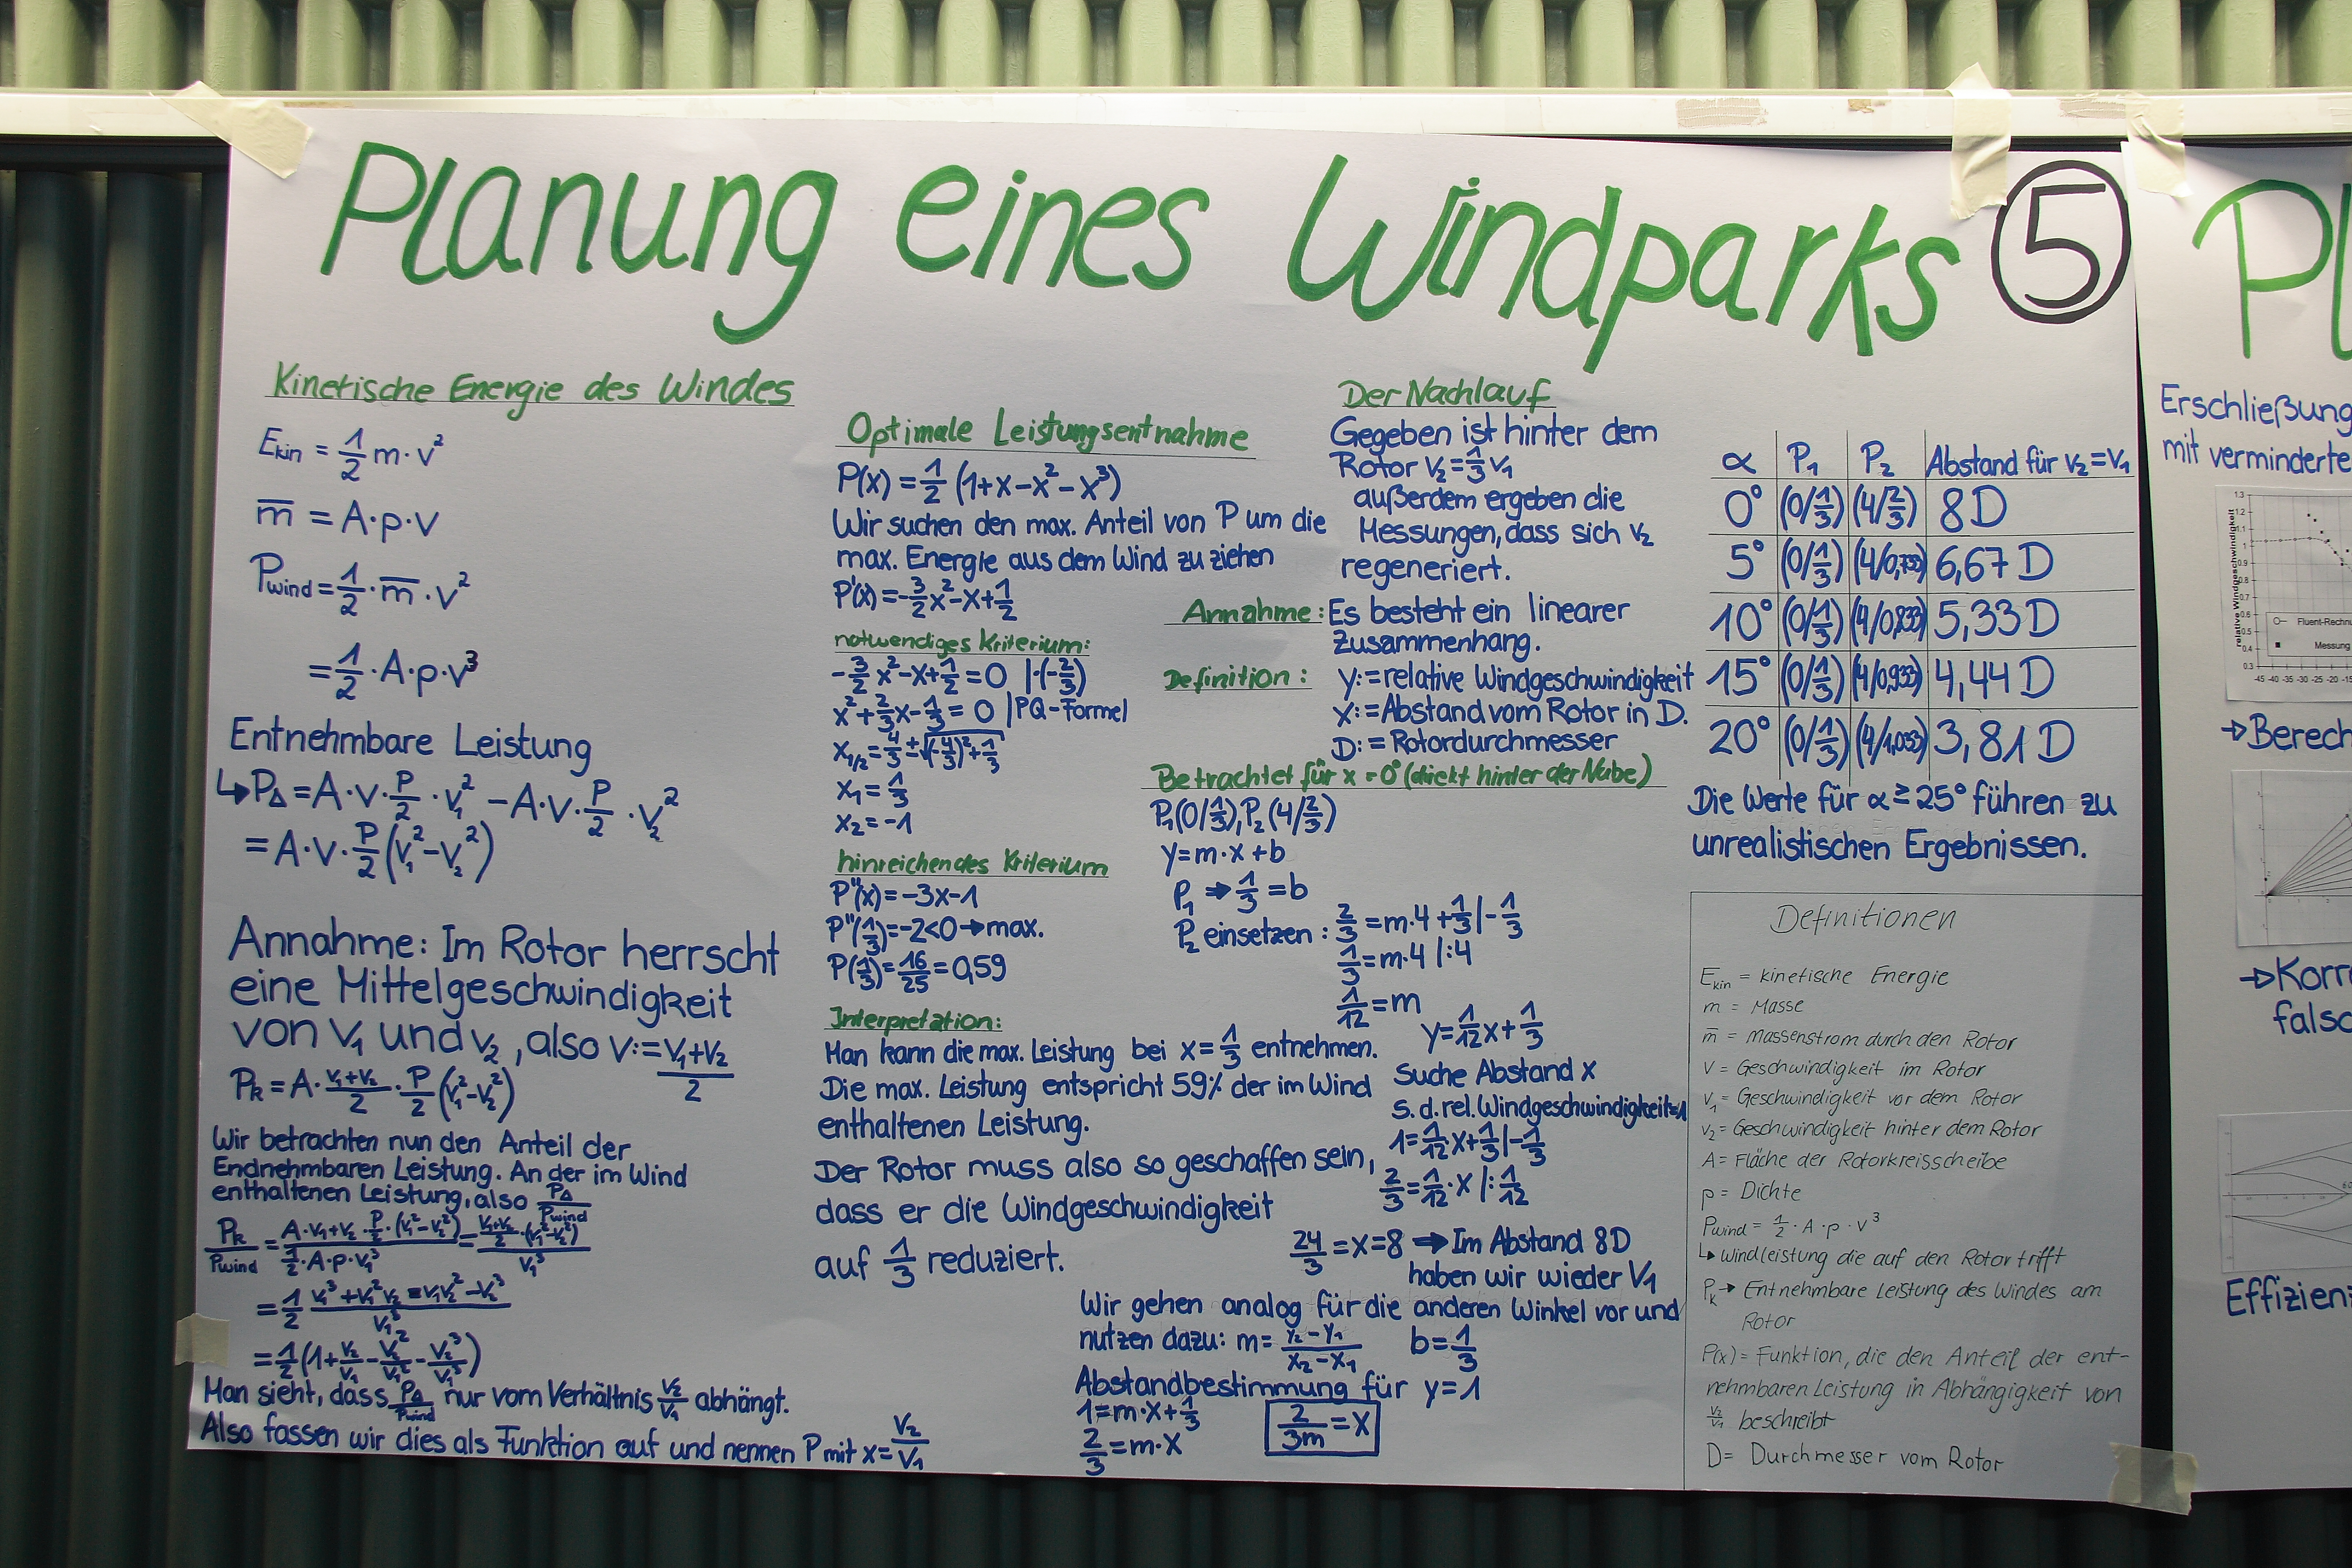 Planung eines Windparks 5
Kinetische Energie des Windes
E_kin = 1/2 m·v²
m̅ = A·p·v
P_Wind = 1/2·m̅·v²
= 1/2·A·p·v³
Entnehmbare Leistung
↳ P_Δ = A·v·P/2·v₁² − A·v·P/2·v₂²
= A·v·P/2 (v₁²−v₂²)
Annahme: Im Rotor herrscht
eine Mittelgeschwindigkeit
von v₁ und v₂, also v:= (v₁+v₂)/2
P_k = A·(v₁+v₂)/2·P/2 (v₁²−v₂²)
Wir betrachten nun den Anteil der
Endnehmbaren Leistung. An der im Wind
enthaltenen Leistung, also P_Δ/P_Wind
P_k/P_Wind = (A·v₁+v₂/2·P/2·(v₁²−v₂²))/(1/2·A·p·v₁³) = ((v₁+v₂)/2·(v₁²−v₂²))/v₁³
= 1/2 (v₁³+v₁²v₂−v₁v₂²−v₂³)/v₁³
= 1/2 (1+v₂/v₁−v₂²/v₁²−v₂³/v₁³)
Man sieht, dass P_Δ/P_Wind nur vom Verhältnis v₂/v₁ abhängt.
Also fassen wir dies als Funktion auf und nennen P mit x = v₂/v₁
Optimale Leistungsentnahme
P(x) = 1/2 (1+x−x²−x³)
Wir suchen den max. Anteil von P um die
max. Energie aus dem Wind zu ziehen
P'(x) = −3/2x²−x+1/2
notwendiges Kriterium:
−3/2 x²−x+1/2 = 0 |·(−2/3)
x²+2/3x−1/3 = 0 |PQ-Formel
x₁/₂ = 4/3 ± √((−4/3)²+1/3)
x₁ = 1/3
x₂ = −1
hinreichendes Kriterium
P''(x) = −3x−1
P''(1/3) = −2<0 → max.
P(1/3) = 16/25 = 0,59
Interpretation:
Man kann die max. Leistung bei x = 1/3 entnehmen.
Die max. Leistung entspricht 59% der im Wind
enthaltenen Leistung.
Der Rotor muss also so geschaffen sein,
dass er die Windgeschwindigkeit
auf 1/3 reduziert.
Der Nachlauf
Gegeben ist hinter dem
Rotor v₂ = 1/3 v₁
außerdem ergeben die
Messungen, dass sich v₂
regeneriert.
Annahme: Es besteht ein linearer
Zusammenhang.
Definition: y:= relative Windgeschwindigkeit
x:= Abstand vom Rotor in D.
D:= Rotordurchmesser
Betrachtet für x = 0° (direkt hinter der Nabe)
P₁(0/1/3), P₂(4/2/3)
y = m·x+b
P₁ ⇒ 1/3 = b
P₂ einsetzen: 2/3 = m·4+1/3 |−1/3
1/3 = m·4 |:4
1/12 = m
y = 1/12x+1/3
Suche Abstand x
s.d. rel. Windgeschwindigkeit=1
1 = 1/12x+1/3 |−1/3
2/3 = 1/12·x |:1/12
24/3 = x = 8 ⇒ Im Abstand 8D
haben wir wieder v₁
Wir gehen analog für die anderen Winkel vor und
nutzen dazu: m = (y₂−y₁)/(x₂−x₁) b = 1/3
Abstandbestimmung für y=1
1 = m·x+1/3
2/3 = m·x
2/3m = x
α P₁ P₂ Abstand für v₂=v₁
0° (0/1/3) (4/2/3) 8D
5° (0/1/3) (4/0,733) 6,67D
10° (0/1/3) (4/0,833) 5,33D
15° (0/1/3) (4/0,933) 4,44D
20° (0/1/3) (4/1,033) 3,81D
Die Werte für α ≥ 25° führen zu
unrealistischen Ergebnissen.
Definitionen
E_kin = kinetische Energie
m = Masse
m̅ = Massenstrom durch den Rotor
v = Geschwindigkeit im Rotor
v₁ = Geschwindigkeit vor dem Rotor
v₂ = Geschwindigkeit hinter dem Rotor
A = Fläche der Rotorkreisscheibe
p = Dichte
P_Wind = 1/2·A·p·v³
↳ Windleistung die auf den Rotor trifft
P_k → Entnehmbare Leistung des Windes am
Rotor
P(x) = Funktion, die den Anteil der ent-
nehmbaren Leistung in Abhängigkeit von
v₂/v₁ beschreibt
D = Durchmesser vom Rotor
Pl
Erschließung
mit verminderte
relative Windgeschwindigkeit
1.3
1.2
1.1
1
0.9
0.8
0.7
0.6
0.5
0.4
0.3
Fluent-Rechnu
Messung
-45 -40 -35 -30 -25 -20 -15
→ Berech
→ Korr
falsc
Effizien